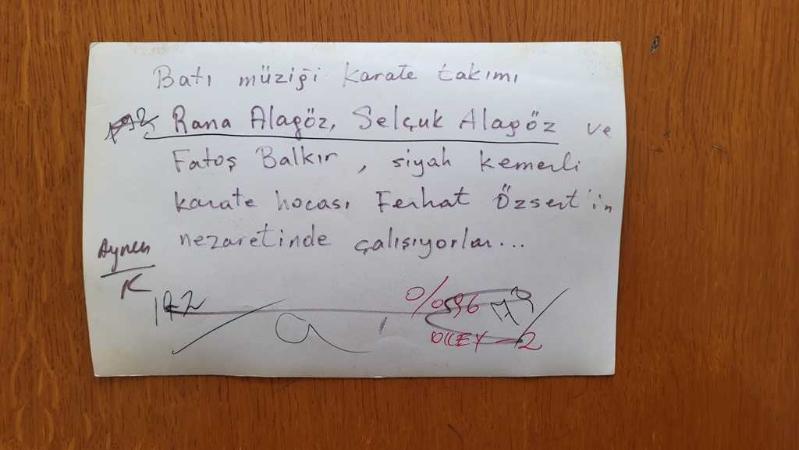 Batı müziği karate takımı
Rana Alagöz, Selçuk Alagöz ve
Fatoş Balkır, siyah kemerli
karate hocası Ferhat Özsert'in
nezaretinde çalışıyorlar...
Aynen
K